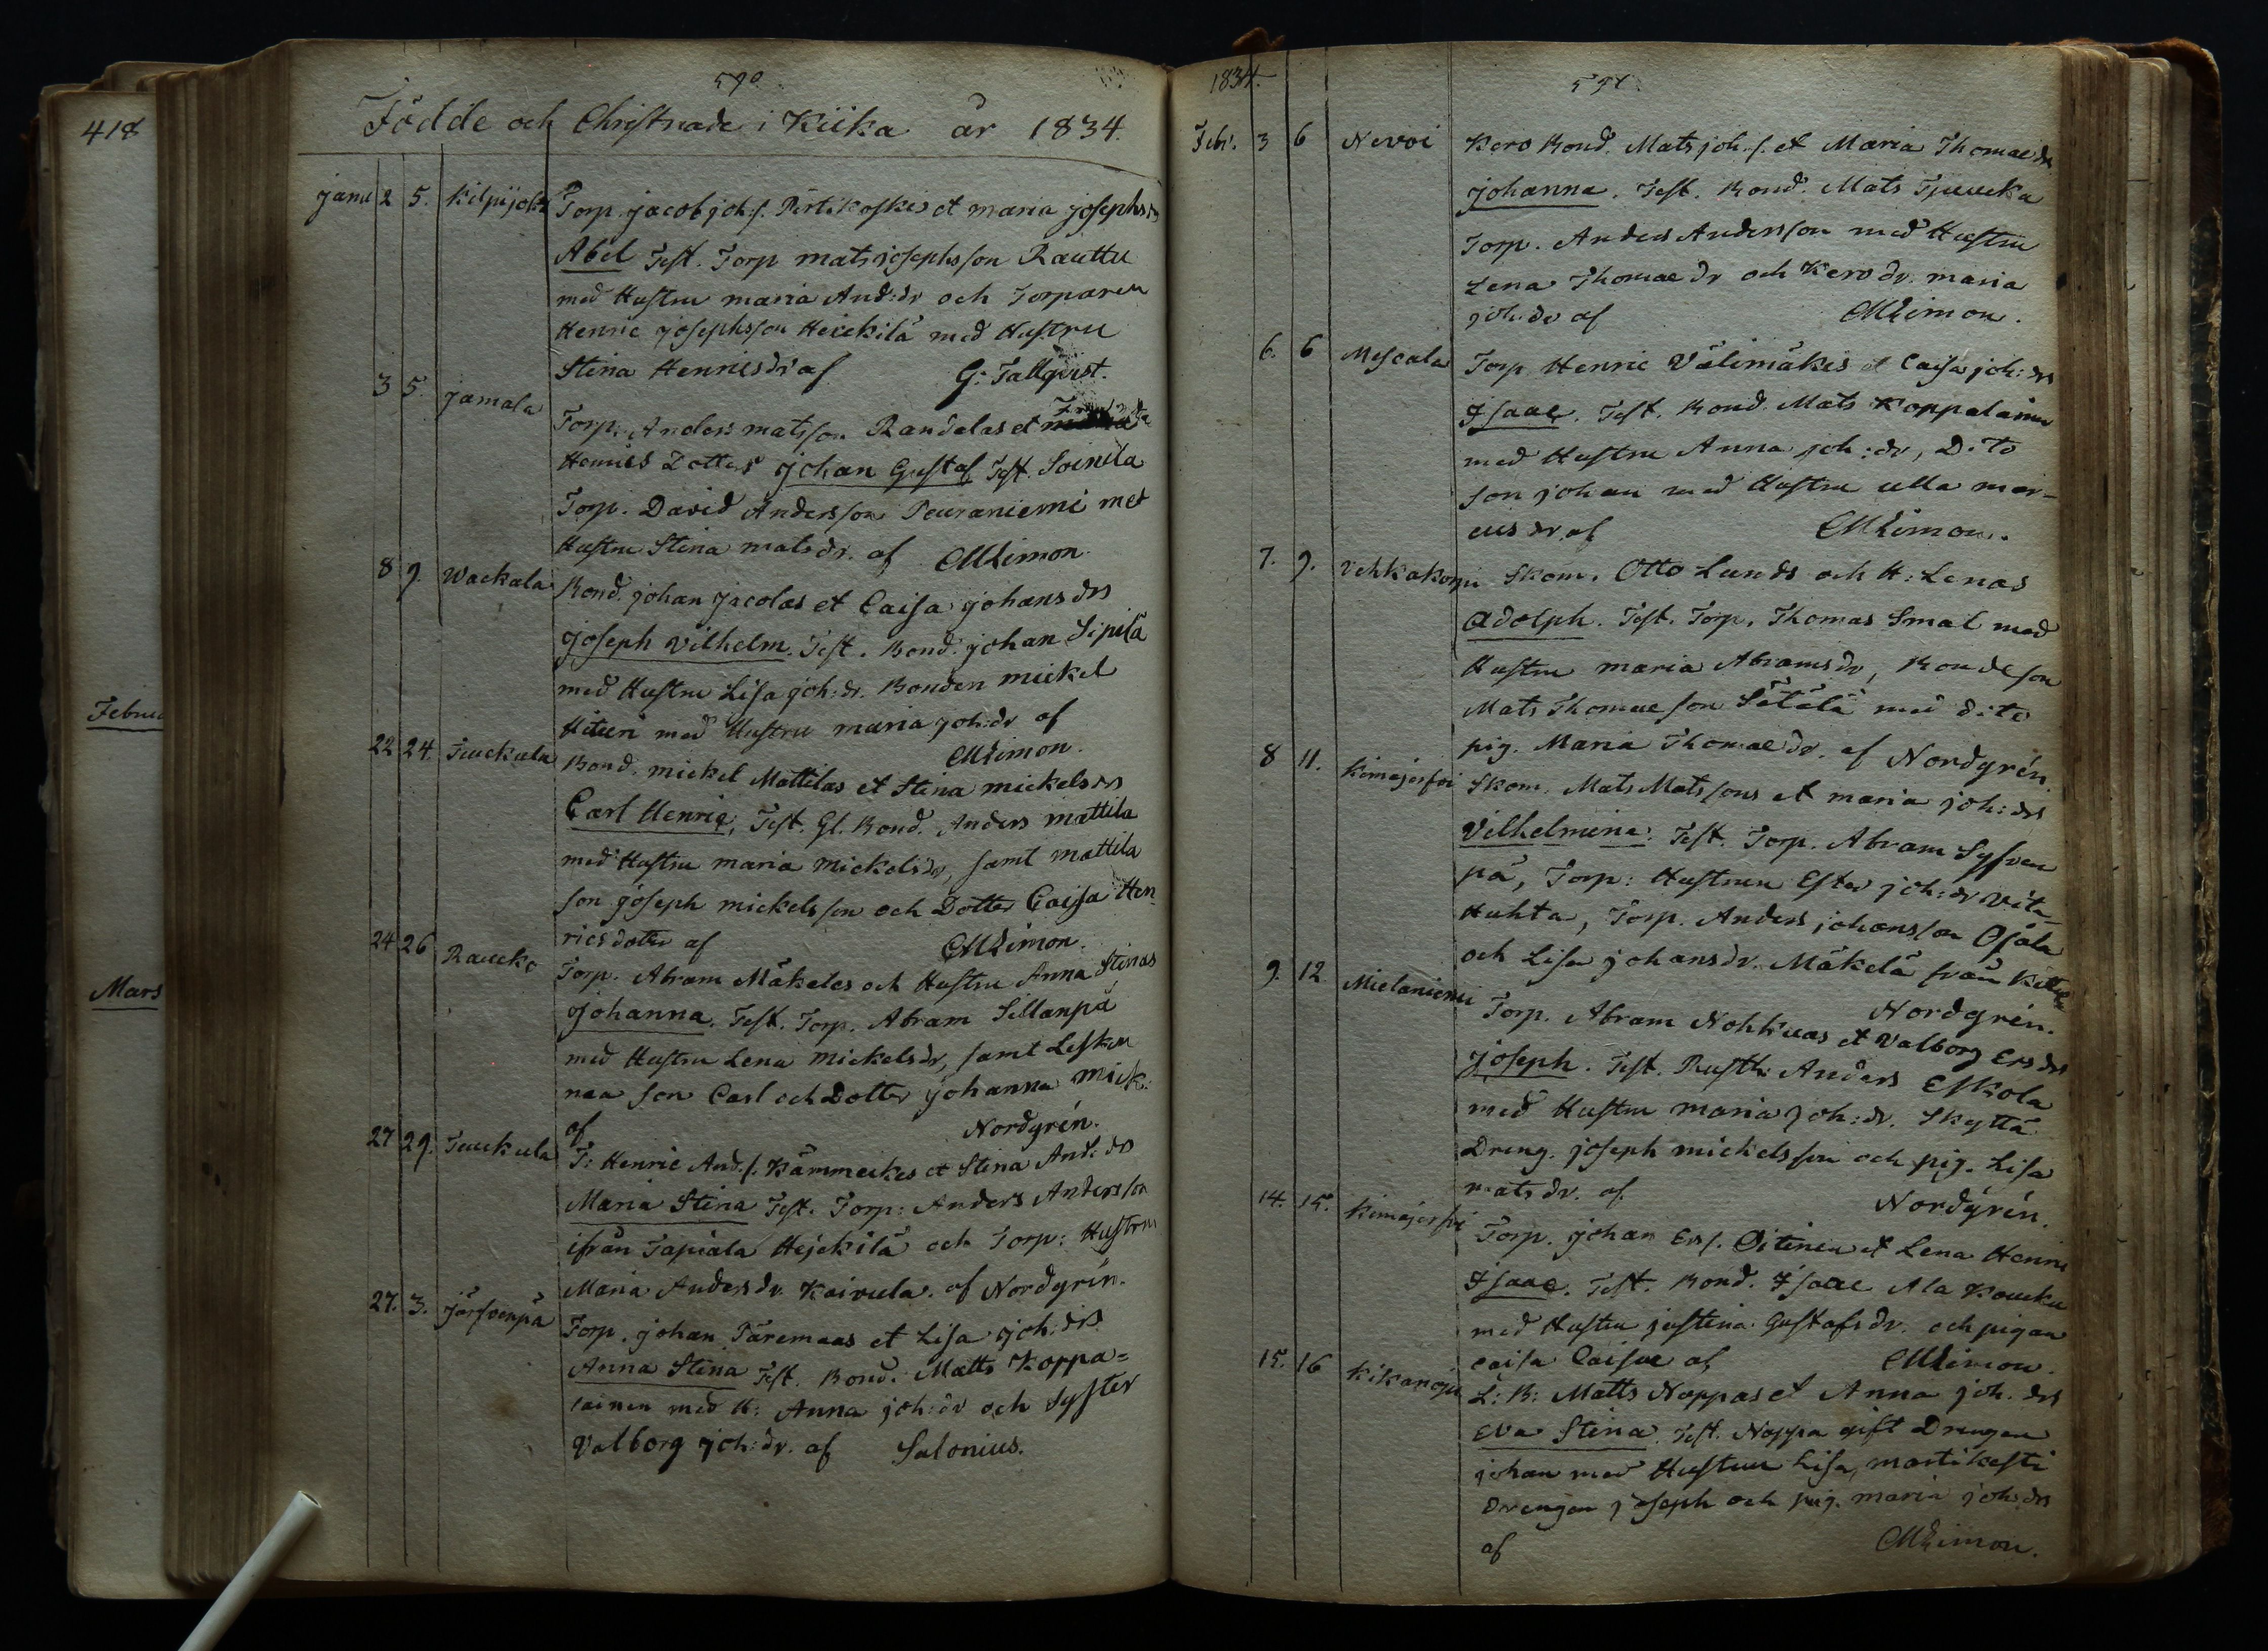 418
Februa
Mars
590
Födde och Christnade i Kiika år 1834.
janu 2 5. Kilpijoki Torp. jacob joh:s. Pirtikoskis et maria josephs drs
Abel Test. Torp mats josephsson Rauttu
med Hustru maria And:dr och Torparen
Henric josephsson Heickilä med Hustru
Stina Henricsdr af G: Tallqvist.
3 5. jamala Torp. Anders matsson Randalas et
Henrics Dotters johan Gustaf Test. Soinila
Torp. David Andersson Peuraniemi med
Hustru Stina matsdr. af CMLimon
8 9. Wackala Bond. johan jacolas et Caisa johans drs
joseph Vilhelm. Test. Bond. johan Sipilä
med Hustru Lisa joh:dr. Bonden mickel
Hituri med Hustru maria joh:dr af
CMLimon.
22 24. Juckula Bond. mickel Mattilas et Stina mickels drs
Carl Henric, Test. Gl. Bond. Anders mattila
med Hustru maria mickelsdr, samt mattila
son joseph mickelsson och Dotter Caisa Hen
ricsdotter af CMLimon.
24 26 Raucko Torp. Abram Mäkeles och Hustru Anna Stinas
johanna. Test. Torp. Abram Sillanpä
med Hustru Lena mickelsdr, samt Lesken
naa son Carl och Dotter johanna mick:
af Nordgrén.
27 29. Juckula T: Henric And.s. Kämmeckes et Stina And: drs
Maria Stina Test. Torp: Anders Andersson
ifrån Tapiala Hejckilä och Torp: Hustrun
Maria Andersdr. Kaivula. af Nordgrén.
27. 3. järfvenpä Torp. johan Päremaas et Lisa joh:drs
Anna Stina Test. Bond. Matts Koppa=
lainen med H: Anna joh:dr och Syster
Valborg joh:dr. af Salonius.
1834. 591
Febr. 3 6 Nevoi Kero Bond. Mats joh.s. et Maria Thomaedrs
johanna. Test. Bond. Mats
Torp. Anders Andersson med Hustru
Lena Thomaedr och Kero dr. maria
joh:dr af CMLimon.
6. 6 Mescala Torp Henric Välimäkis et Caisa joh:drs
Isaac. Test. Bond. Mats Koppalainen
med Hustru Anna joh:dr, Dito
son johan med Hustru ulla mar-
cus dr. af CMLimon.
7. 9. Vehkakorpi Skom. Otto Lunds och H: Lenas
Adolph. Test. Torp. Thomas Smal med
Hustru maria Abramsdr, Bondeson
Mats Thomaeson Sätälä med dito
pig. Maria Thomaedr. af Nordgrén.
8 11. Kimajerfvi Skom. Mats Matssons et maria joh:drs
Vilhelmina. Test. Torp. Abram Syfven
pä, Torp: Hustrun Ester joh:dr Vita
Huhta, Torp. Anders johansson Ojala
och Lisa johansdr. Mäkelä från
Nordgrén.
9. 12 Mielaniemi Torp. Abram Nohkuas et Valborg Ersdrs
joseph. Test. Rusth: Anders Eskola
med Hustru maria joh:dr. Skyttä
Dreng. joseph mickelsson och pig. Lisa
matsdr. af. Nordgrén.
14. 15. Kimajerfvi Torp. johan Ers. Oitinen et Lena Henric
Isaac. Test. Bond. Isaac Ala Koucku
med Hustru justina Gustafsdr. och pigan
caisa Caisae af CMLimon.
15. 16 Kikanoja L: B: Matts Noppas et Anna joh. drs
Eva Stina. Test. Noppa gift Drengen
johan med Hustrun Lisa, martikosti
drengen joseph och pig. maria joh:drs
af CMLimon.